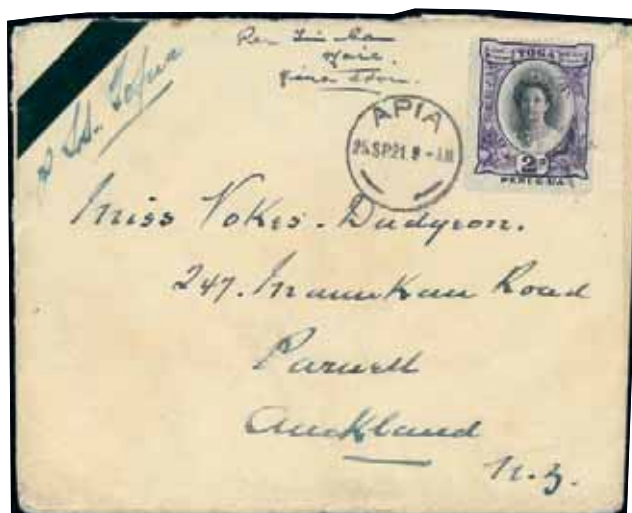 Per Tin Can
Mail.
S.S. Tofua
APIA
25.SP.21.9-AM
TOGA
2D
PENI E UA
Miss Vokes-Dudgeon.
247. Manukau Road
Parnell
Auckland
N.Z.